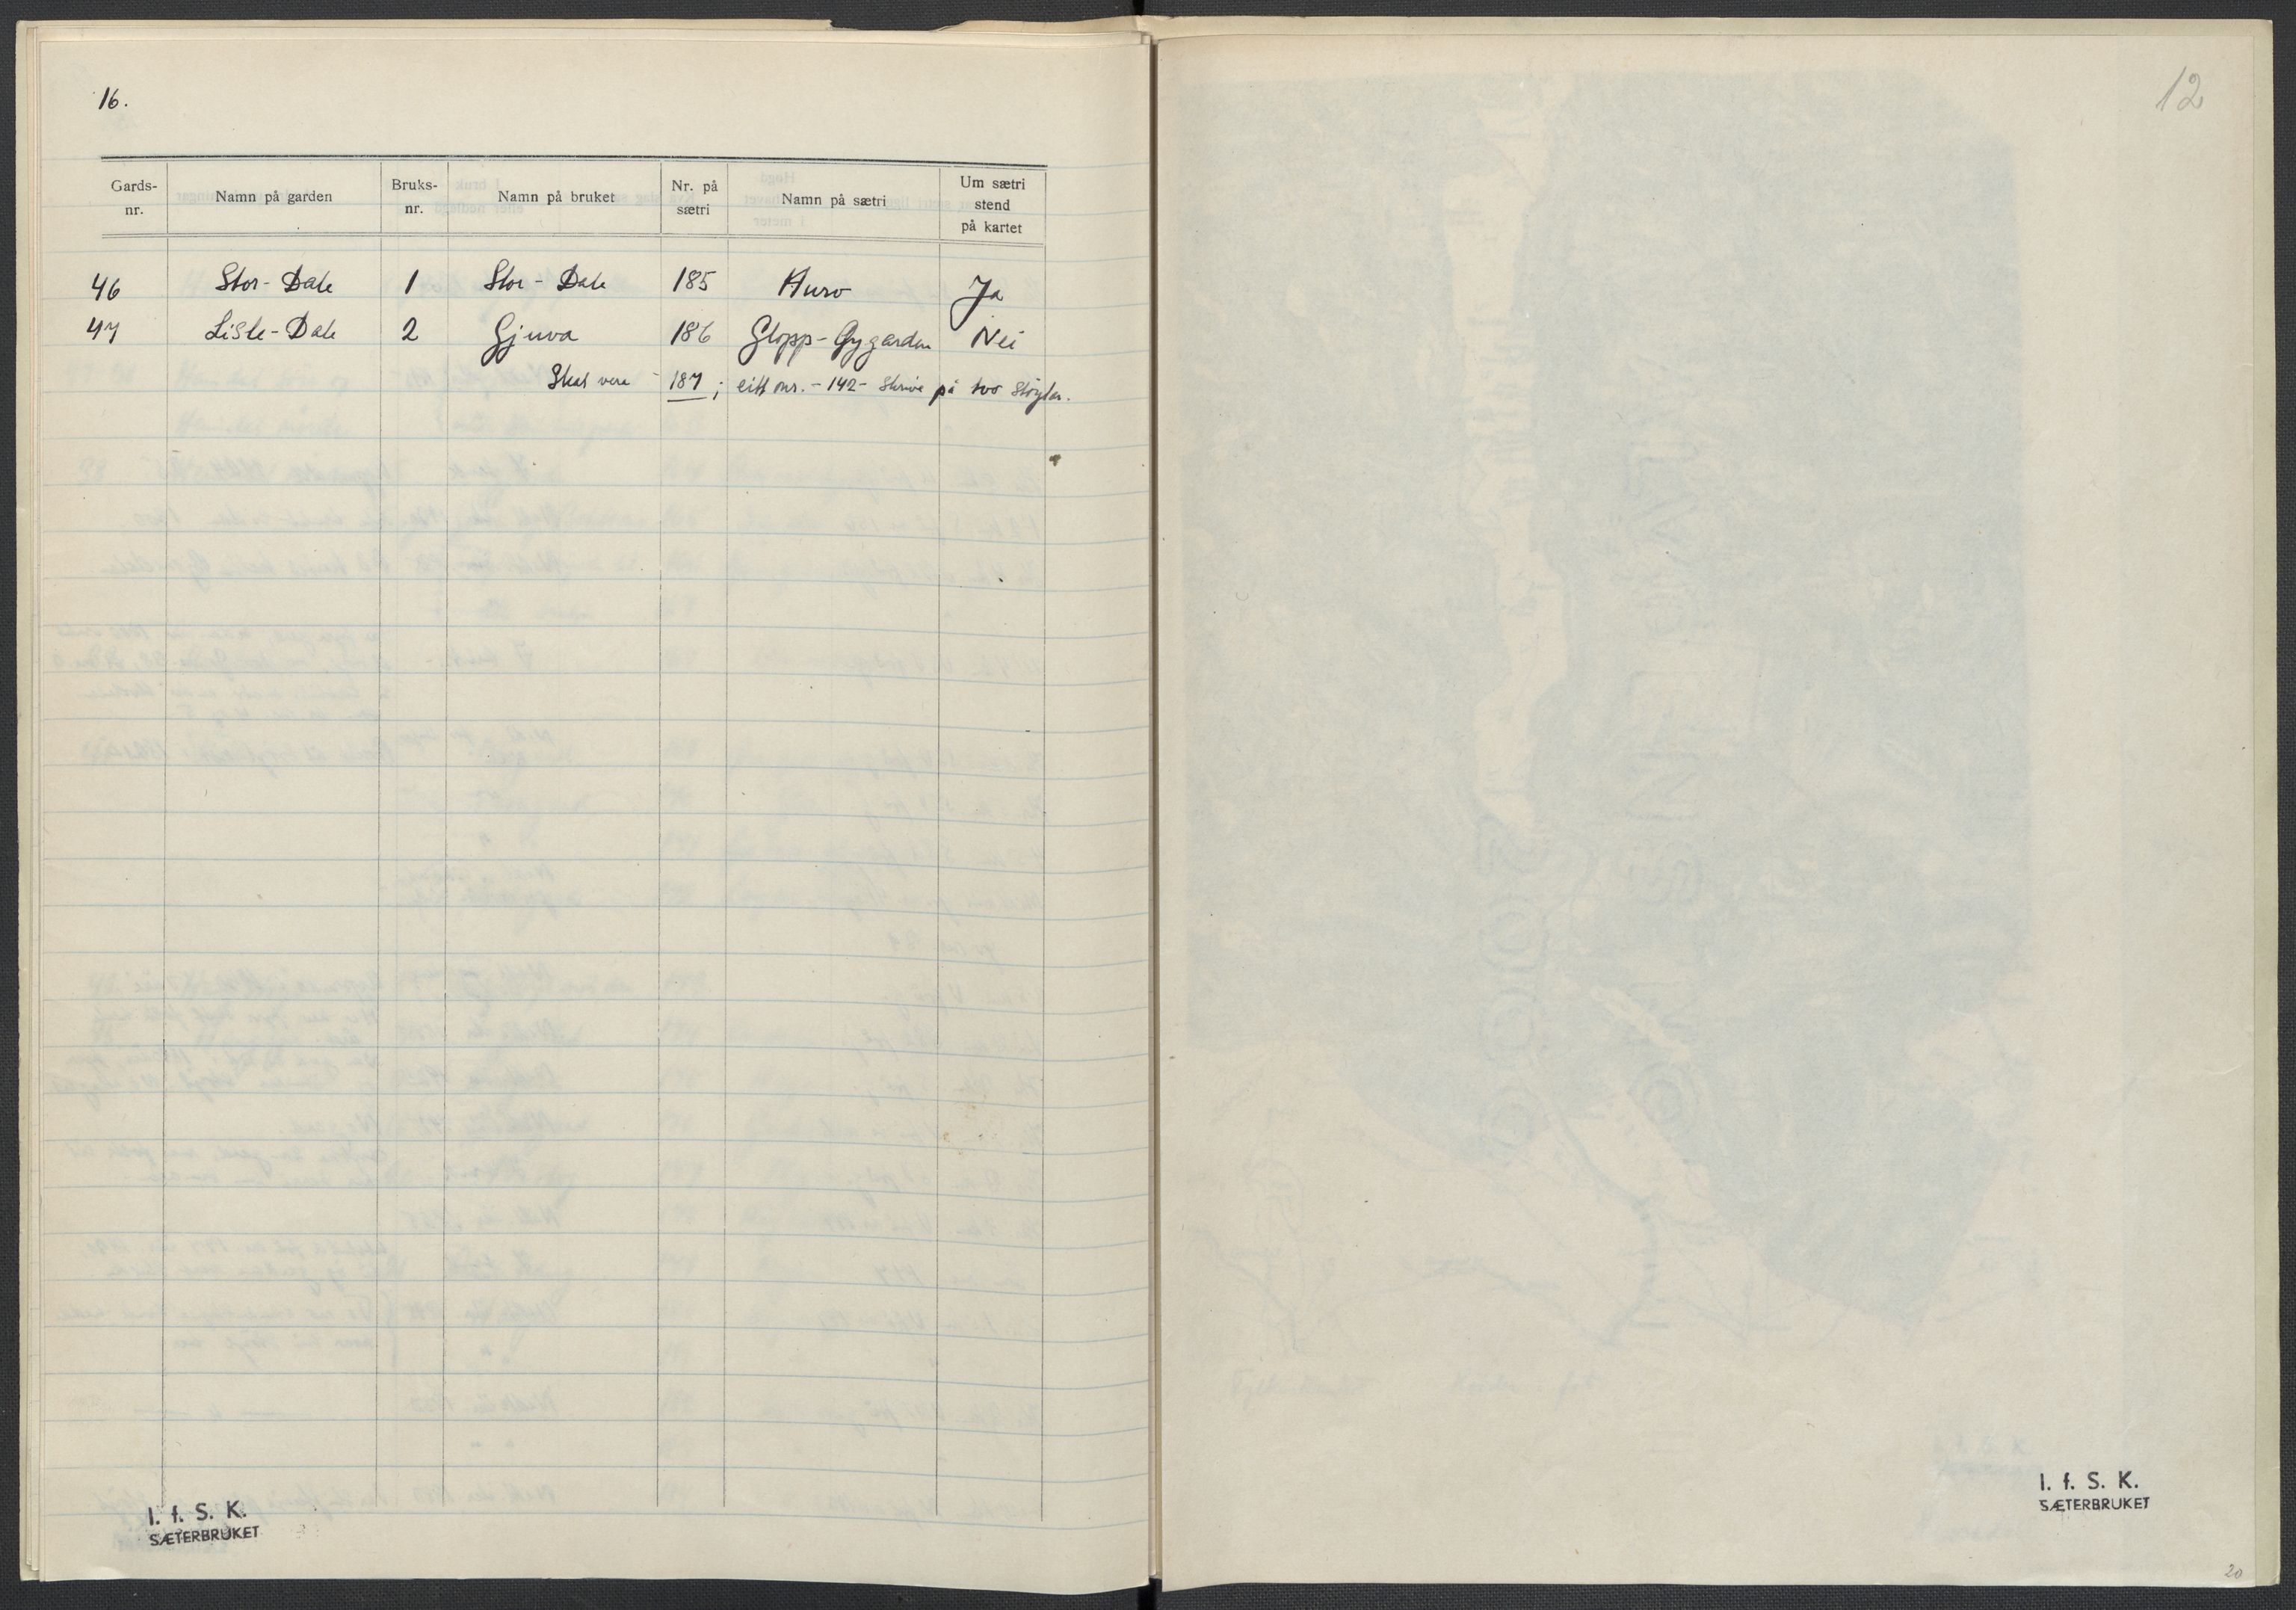 16.
Gards-nr. Namn på garden Bruks-nr. Namn på bruket Nr. på sætri Namn på sætri Um sætri stend på kartet
46 Stor-Dale 1 Stor-Dale 185 Huro Ja
47 Lisle-Dale 2 Gjuva 186 Glopp-Gygarden Nei
Skal vere 187; eitt nr. - 142 - på tvo støylar.
I. f. S. K.
SÆTERBRUKET
12
I. f. S. K.
SÆTERBRUKET
20